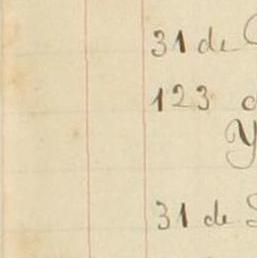 31 de
123
Y
31 de